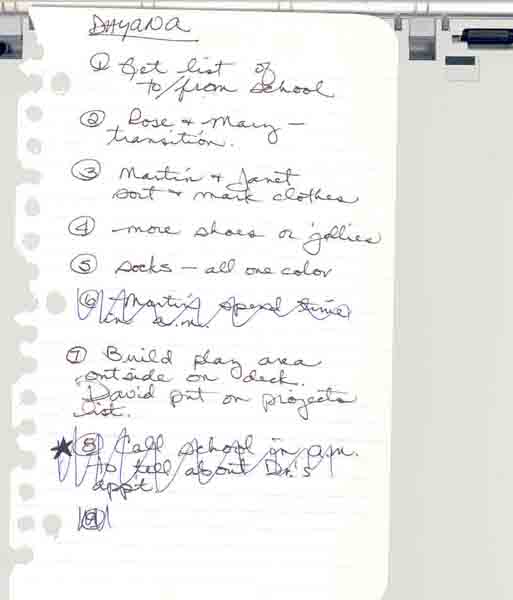 DAYANA
① Get list of
to/from school
② Rose & Mary –
transition.
③ Martin & Janet
sort & mark clothes
④ more shoes or jellies
⑤ socks – all one color
⑥ Martin spend time
in a.m.
⑦ Build play area
outside on deck.
David put on projects
list.
★ ⑧ Call school in a.m.
to tell about Dr.'s
app't
⑨